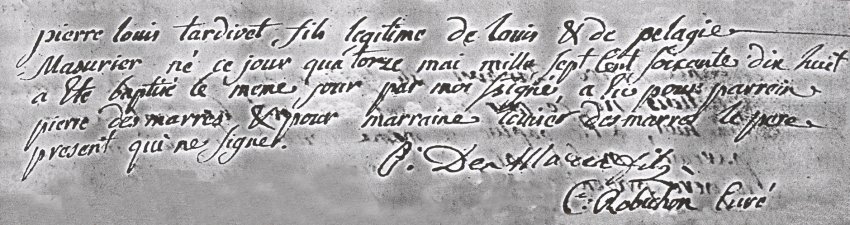 pierre louis tardivet fils legitime de louis & de pelagie
Masurier né ce jour quatorze mai mille sept cent soixante dix huit
a été baptisé le meme jour par moi signé, a eu pour parrein
pierre desmarres & pour marraine desmarres le pere
present qui ne signer.
P. Des fils
C. Robichon curé